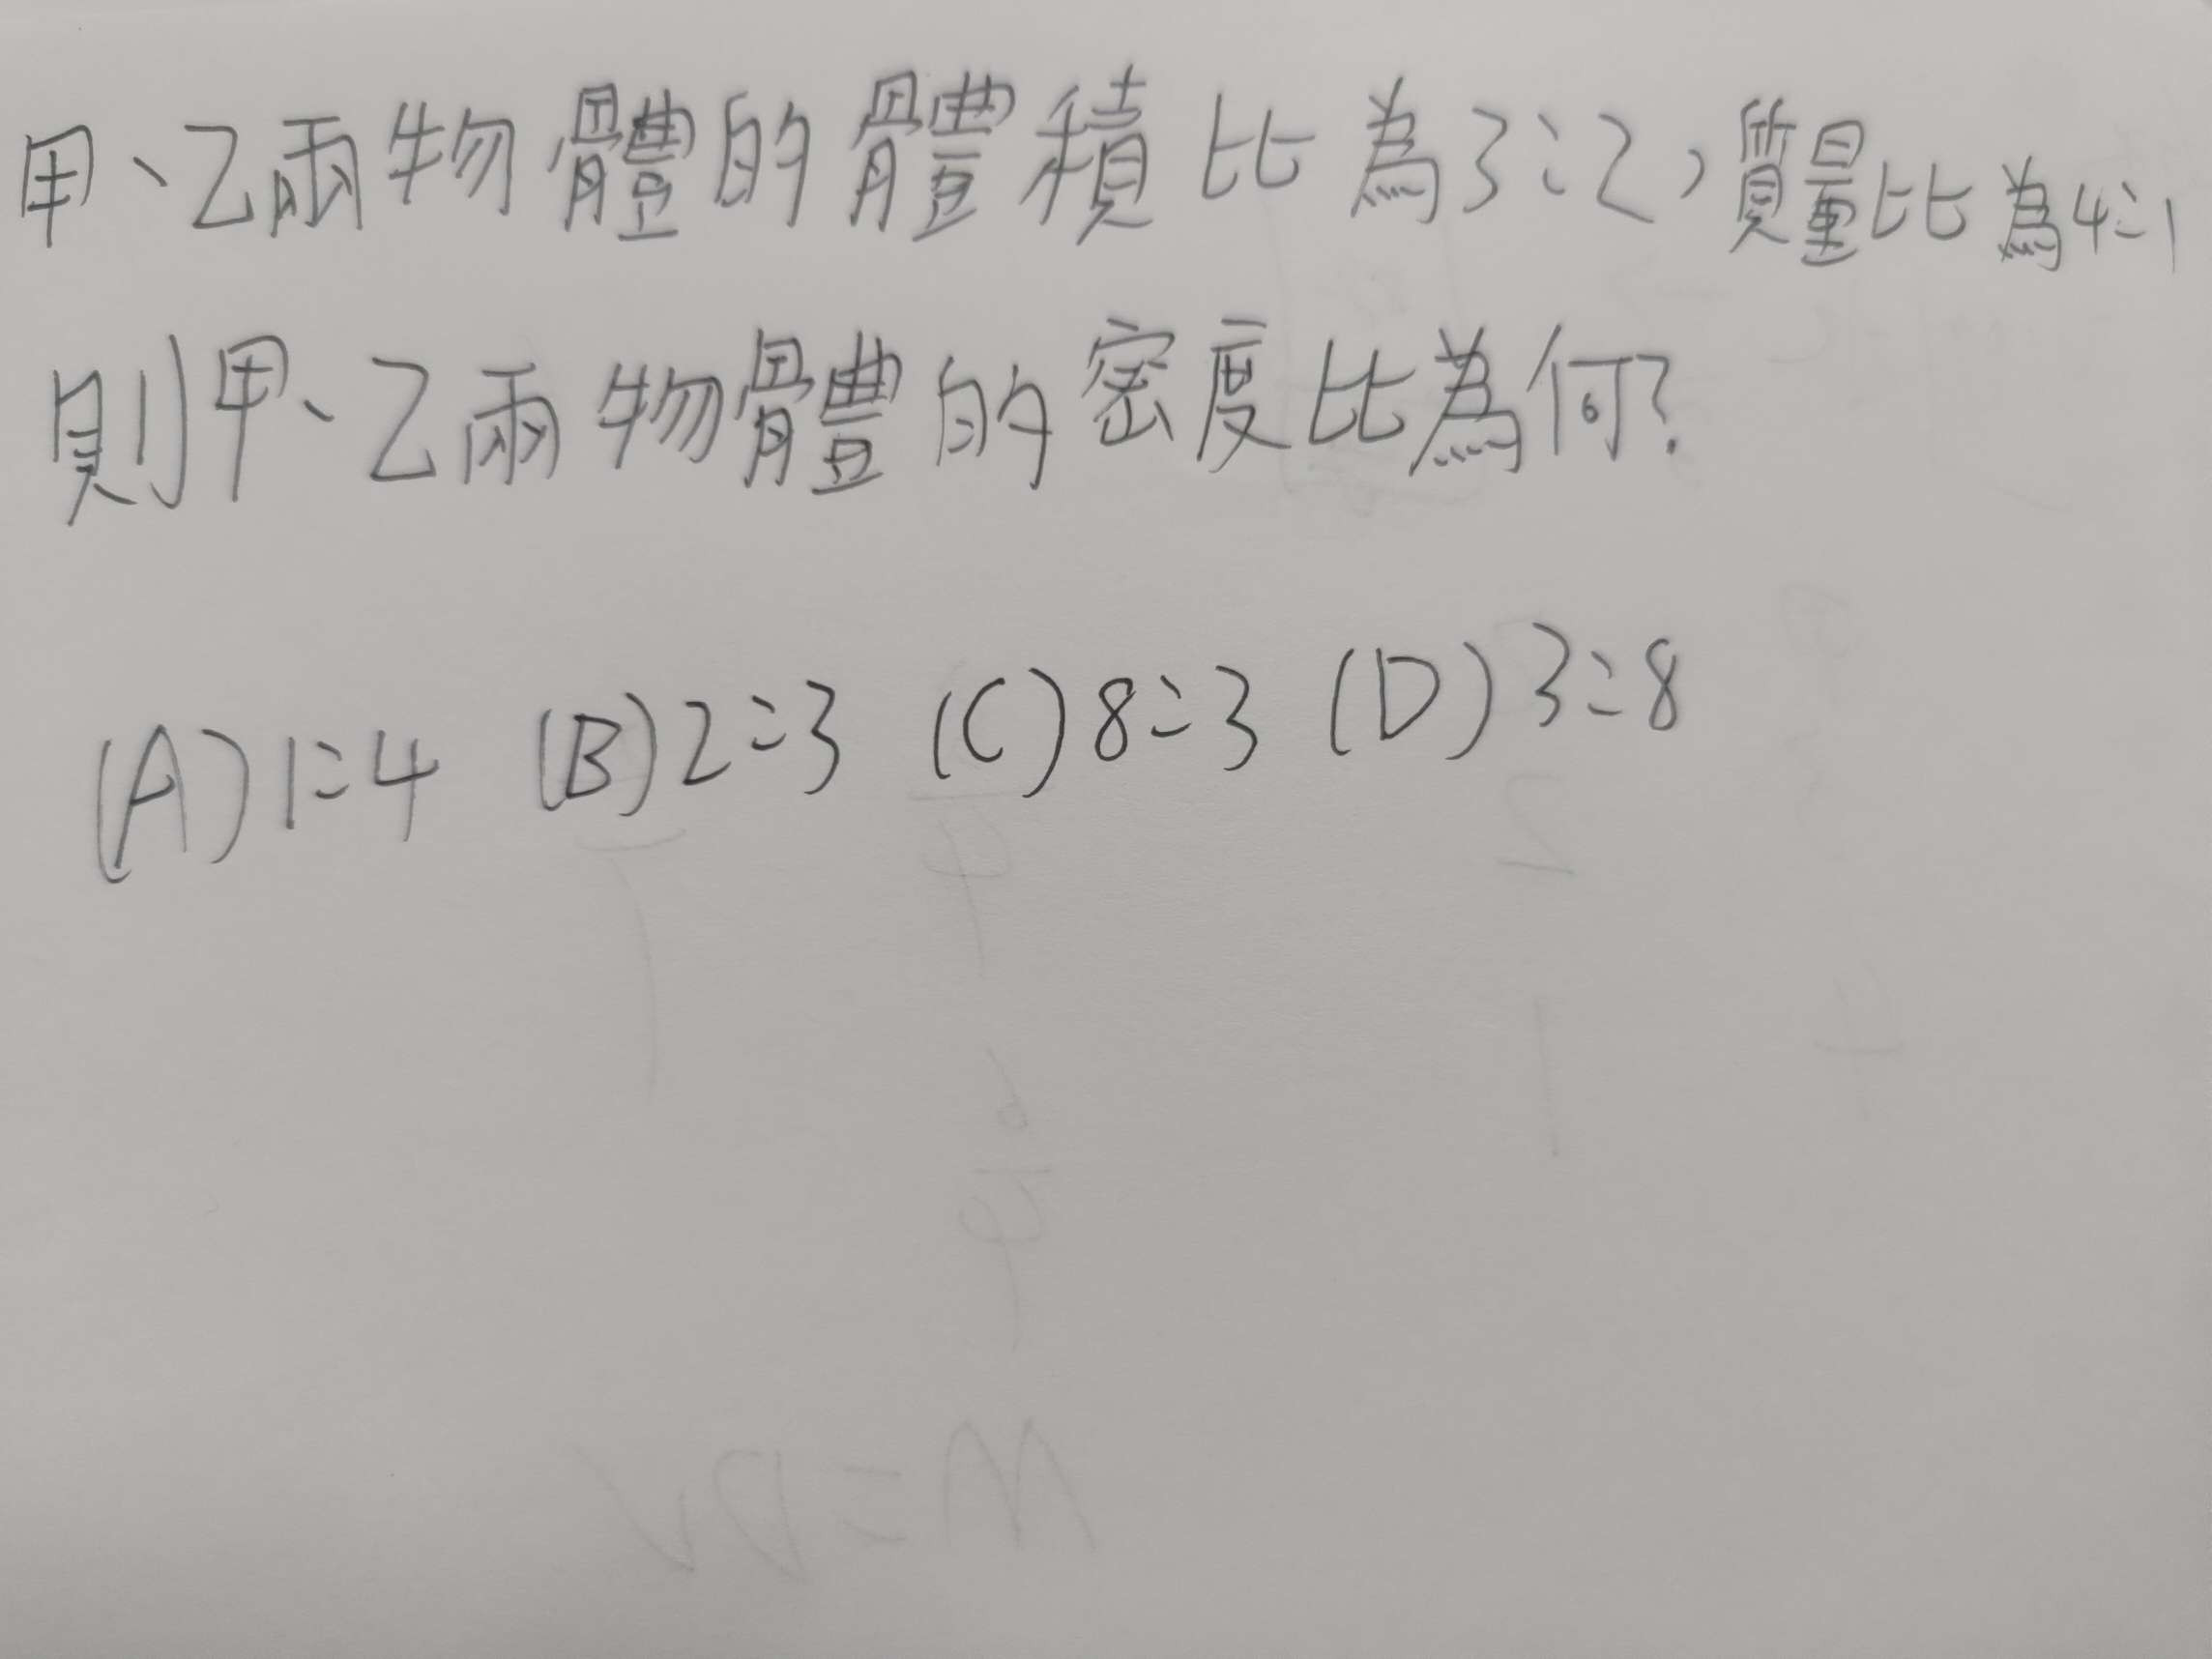 甲、乙兩物體的體積比為3:2，質量比為4:1
則甲、乙兩物體的密度比為何?
(A)1:4 (B)2:3 (C)8:3 (D)3:8